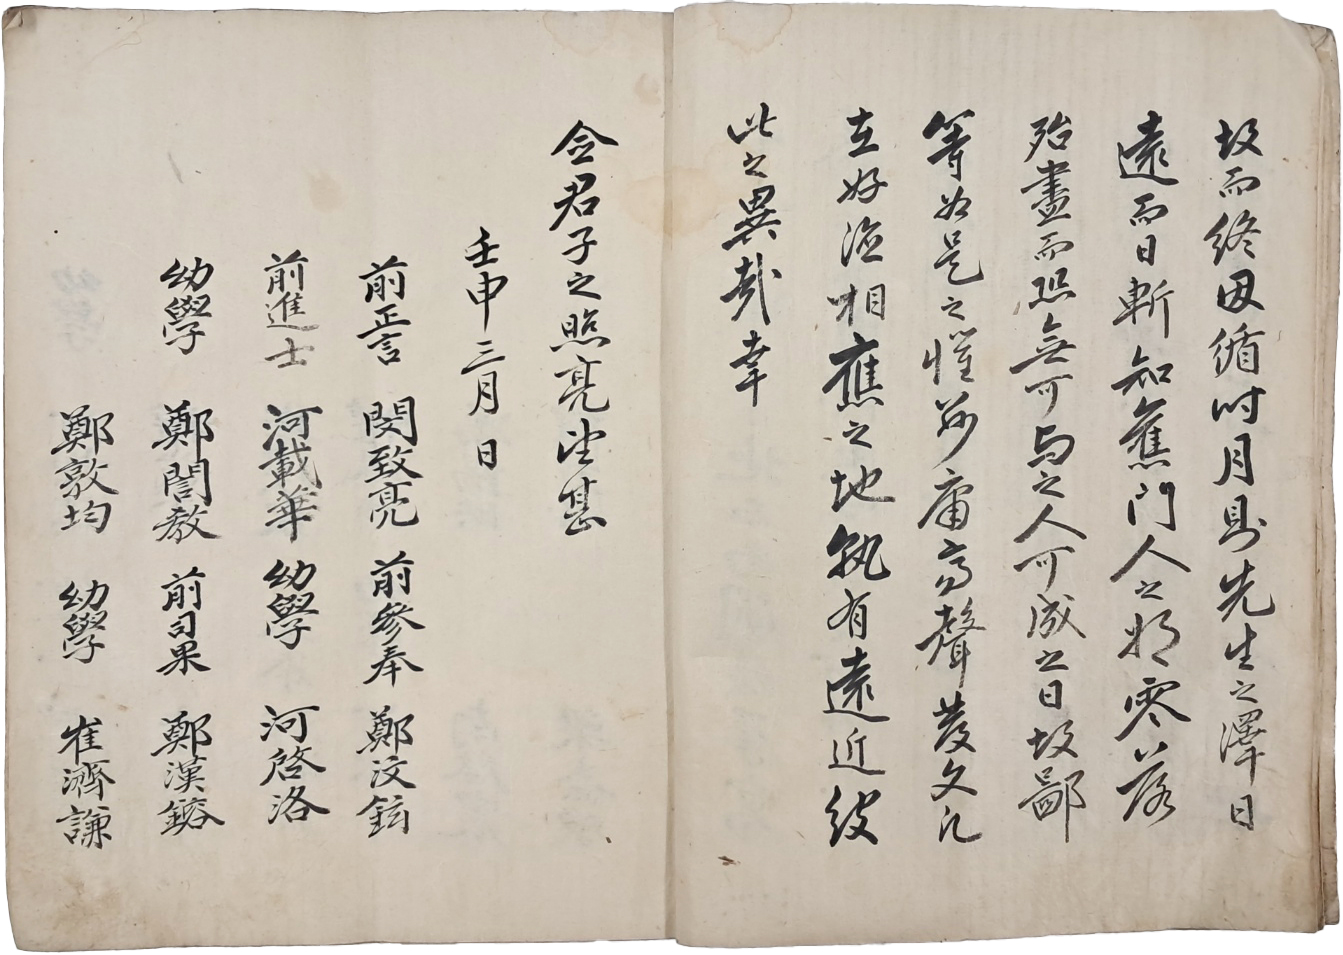 故而終因循時月則先生之澤日
遠而日斬知舊門人之將零落
殆盡而恐無可与之人可成之日故鄙
等如是之慛玆庸高聲發文凡
在好海相應之地孰有遠近彼
此之異哉幸
僉君子之照亮望甚
壬申三月日
前正言 閔致亮 前參奉 鄭汶鉉
前進士 河載華 幼學 河啓洛
幼學 鄭誾教 前司果 鄭漢鎔
鄭敦均 幼學 崔濟謙